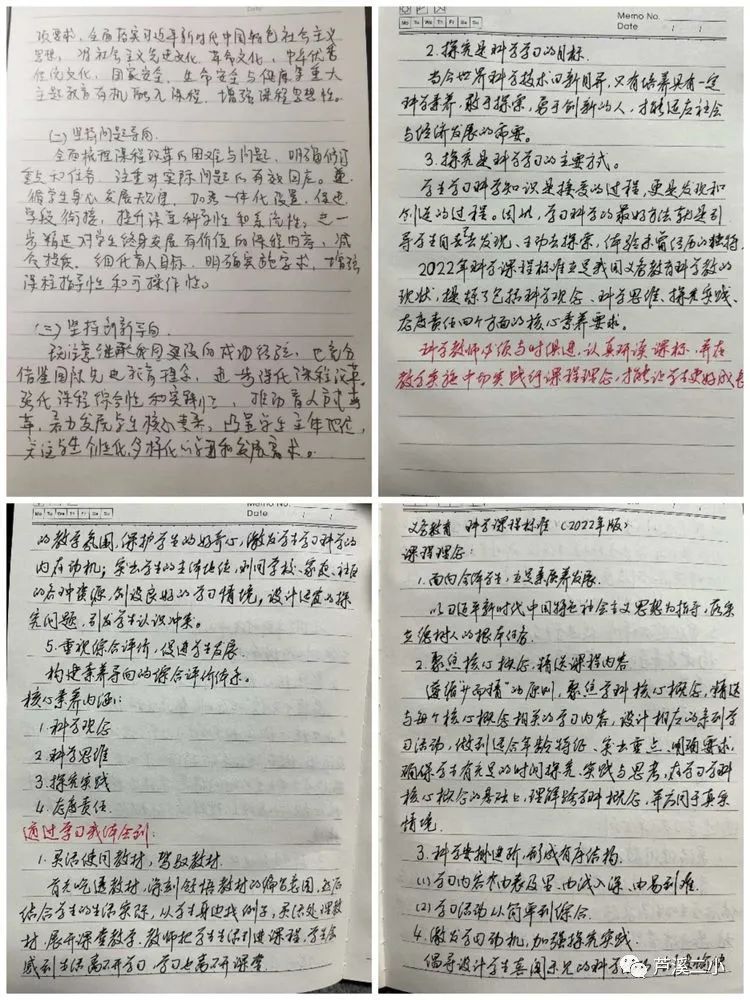 项要求，全面落实习近平新时代中国特色社会主义
思想，将社会主义先进文化、革命文化、中华优秀
传统文化、国家安全、生命安全与健康等重大
主题教育有机融入课程，增强课程思想性。
(二)坚持问题导向
全面梳理课程改革的困难与问题，明确修订
重点和任务，注重对实际问题的有效回应。遵
循学生身心发展规律，加强一体化设置，促进
学段衔接，提升课程科学性和系统性。进一
步精选对学生终身发展有价值的课程内容，减
负提质。细化育人目标，明确实施要求，增强
课程指导性和可操作性。
(三)坚持创新导向
既注意继承我国课程的成功经验，也充分
借鉴国际先进教育理念，进一步深化课程改革。
强化课程综合性和实践性，推动育人方式变
革，着力发展学生核心素养。凸显学生主体地位，
关注学生个性化、多样化的学习和发展需求。
Mo Tu We Th Fr Sa Su
Memo No.
Date / /
2. 探究是科学学习的目标.
当今世界科学技术日新月异，只有培养具有一定
科学素养，敢于探索，勇于创新的人，才能适应社会
与经济发展的需要。
3. 探究是科学学习的主要方式。
学生学习科学知识是接受的过程，更是发现和
创造的过程。因此，学习科学的最好方法就是引
导学生自主去发现、主动去探索，体验未曾经历的独特.
2022年科学课程标准立足我国义务教育科学教的
现状，提炼了包括科学观念、科学思维、探究实践、
态度责任四个方面的核心素养要求。
科学教师必须与时俱进，认真研读课标，并在
教学实施中切实践行课程理念，才能让学生更好成长
Mo Tu We Th Fr Sa Su
Memo No.
Date / /
的教学氛围，保护学生的好奇心，激发学生学习科学的
内在动机；突出学生的主体地位，利用学校、家庭、社区
的各种资源，创设良好的学习情境，设计适宜的探
究问题，引发学生认识冲突。
5. 重视综合评价，促进学生发展.
构建素养导向的综合评价体系。
核心素养内涵:
1. 科学观念
2. 科学思维
3. 探究实践
4. 态度责任.
通过学习我体会到:
1. 灵活使用教材，驾驭教材.
首先吃透教材，深刻领悟教材的编写意图，然后
结合学生的生活实际，从学生身边找例子，灵活处理教
材，展开课堂教学，教师把学生生活引进课程，学生会
感到生活离不开学习，学习也离不开课堂.
义务教育 科学课程标准（2022年版）
课程理念:
1. 面向全体学生，立足素质养发展.
以习近平新时代中国特色社会主义思想为指导，落实
立德树人的根本任务.
2. 聚焦核心概念，精选课程内容
遵循"少而精"的原则，聚焦学科核心概念，精选
与每个核心概念相关的学习内容，设计相应的系列学
习活动，做到适合年龄特征、突出重点、明确要求，
确保学生有充足的时间探究、实践与思考，在学习学科
核心概念的基础上，理解跨学科概念，并应用于真实
情境.
3. 科学安排进阶，形成有序结构.
(1)学习内容由表及里、由浅入深、由易到难.
(2)学习活动从简单到综合.
4. 激发学习动机，加强探究实践
倡导设计学生喜闻乐见的科学
芦溪二小